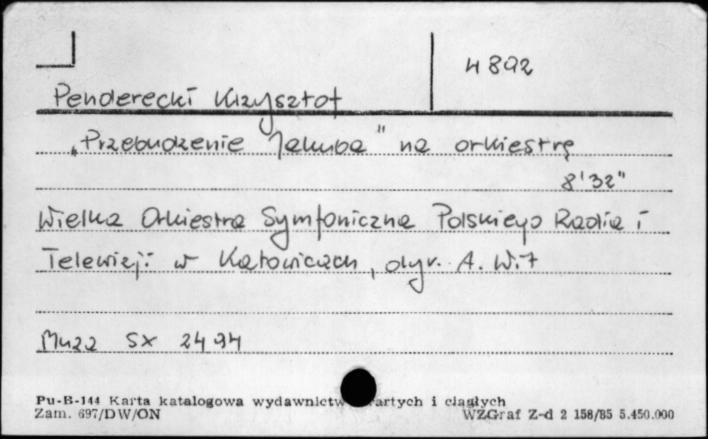 4892
Penderecki Krzysztof
„Przebudzenie Jakuba" na orkiestrę
8'32"
Wielka Orkiestra Symfoniczna Polskiego Radia i
Telewizji w Katowicach, dyr. A. Wit
Muza SX 2494
Pu-B-144 Karta katalogowa wydawnictw artych i ciągłych
Zam. 697/DW/ON WZGraf Z-d 2 158/85 5.450.000